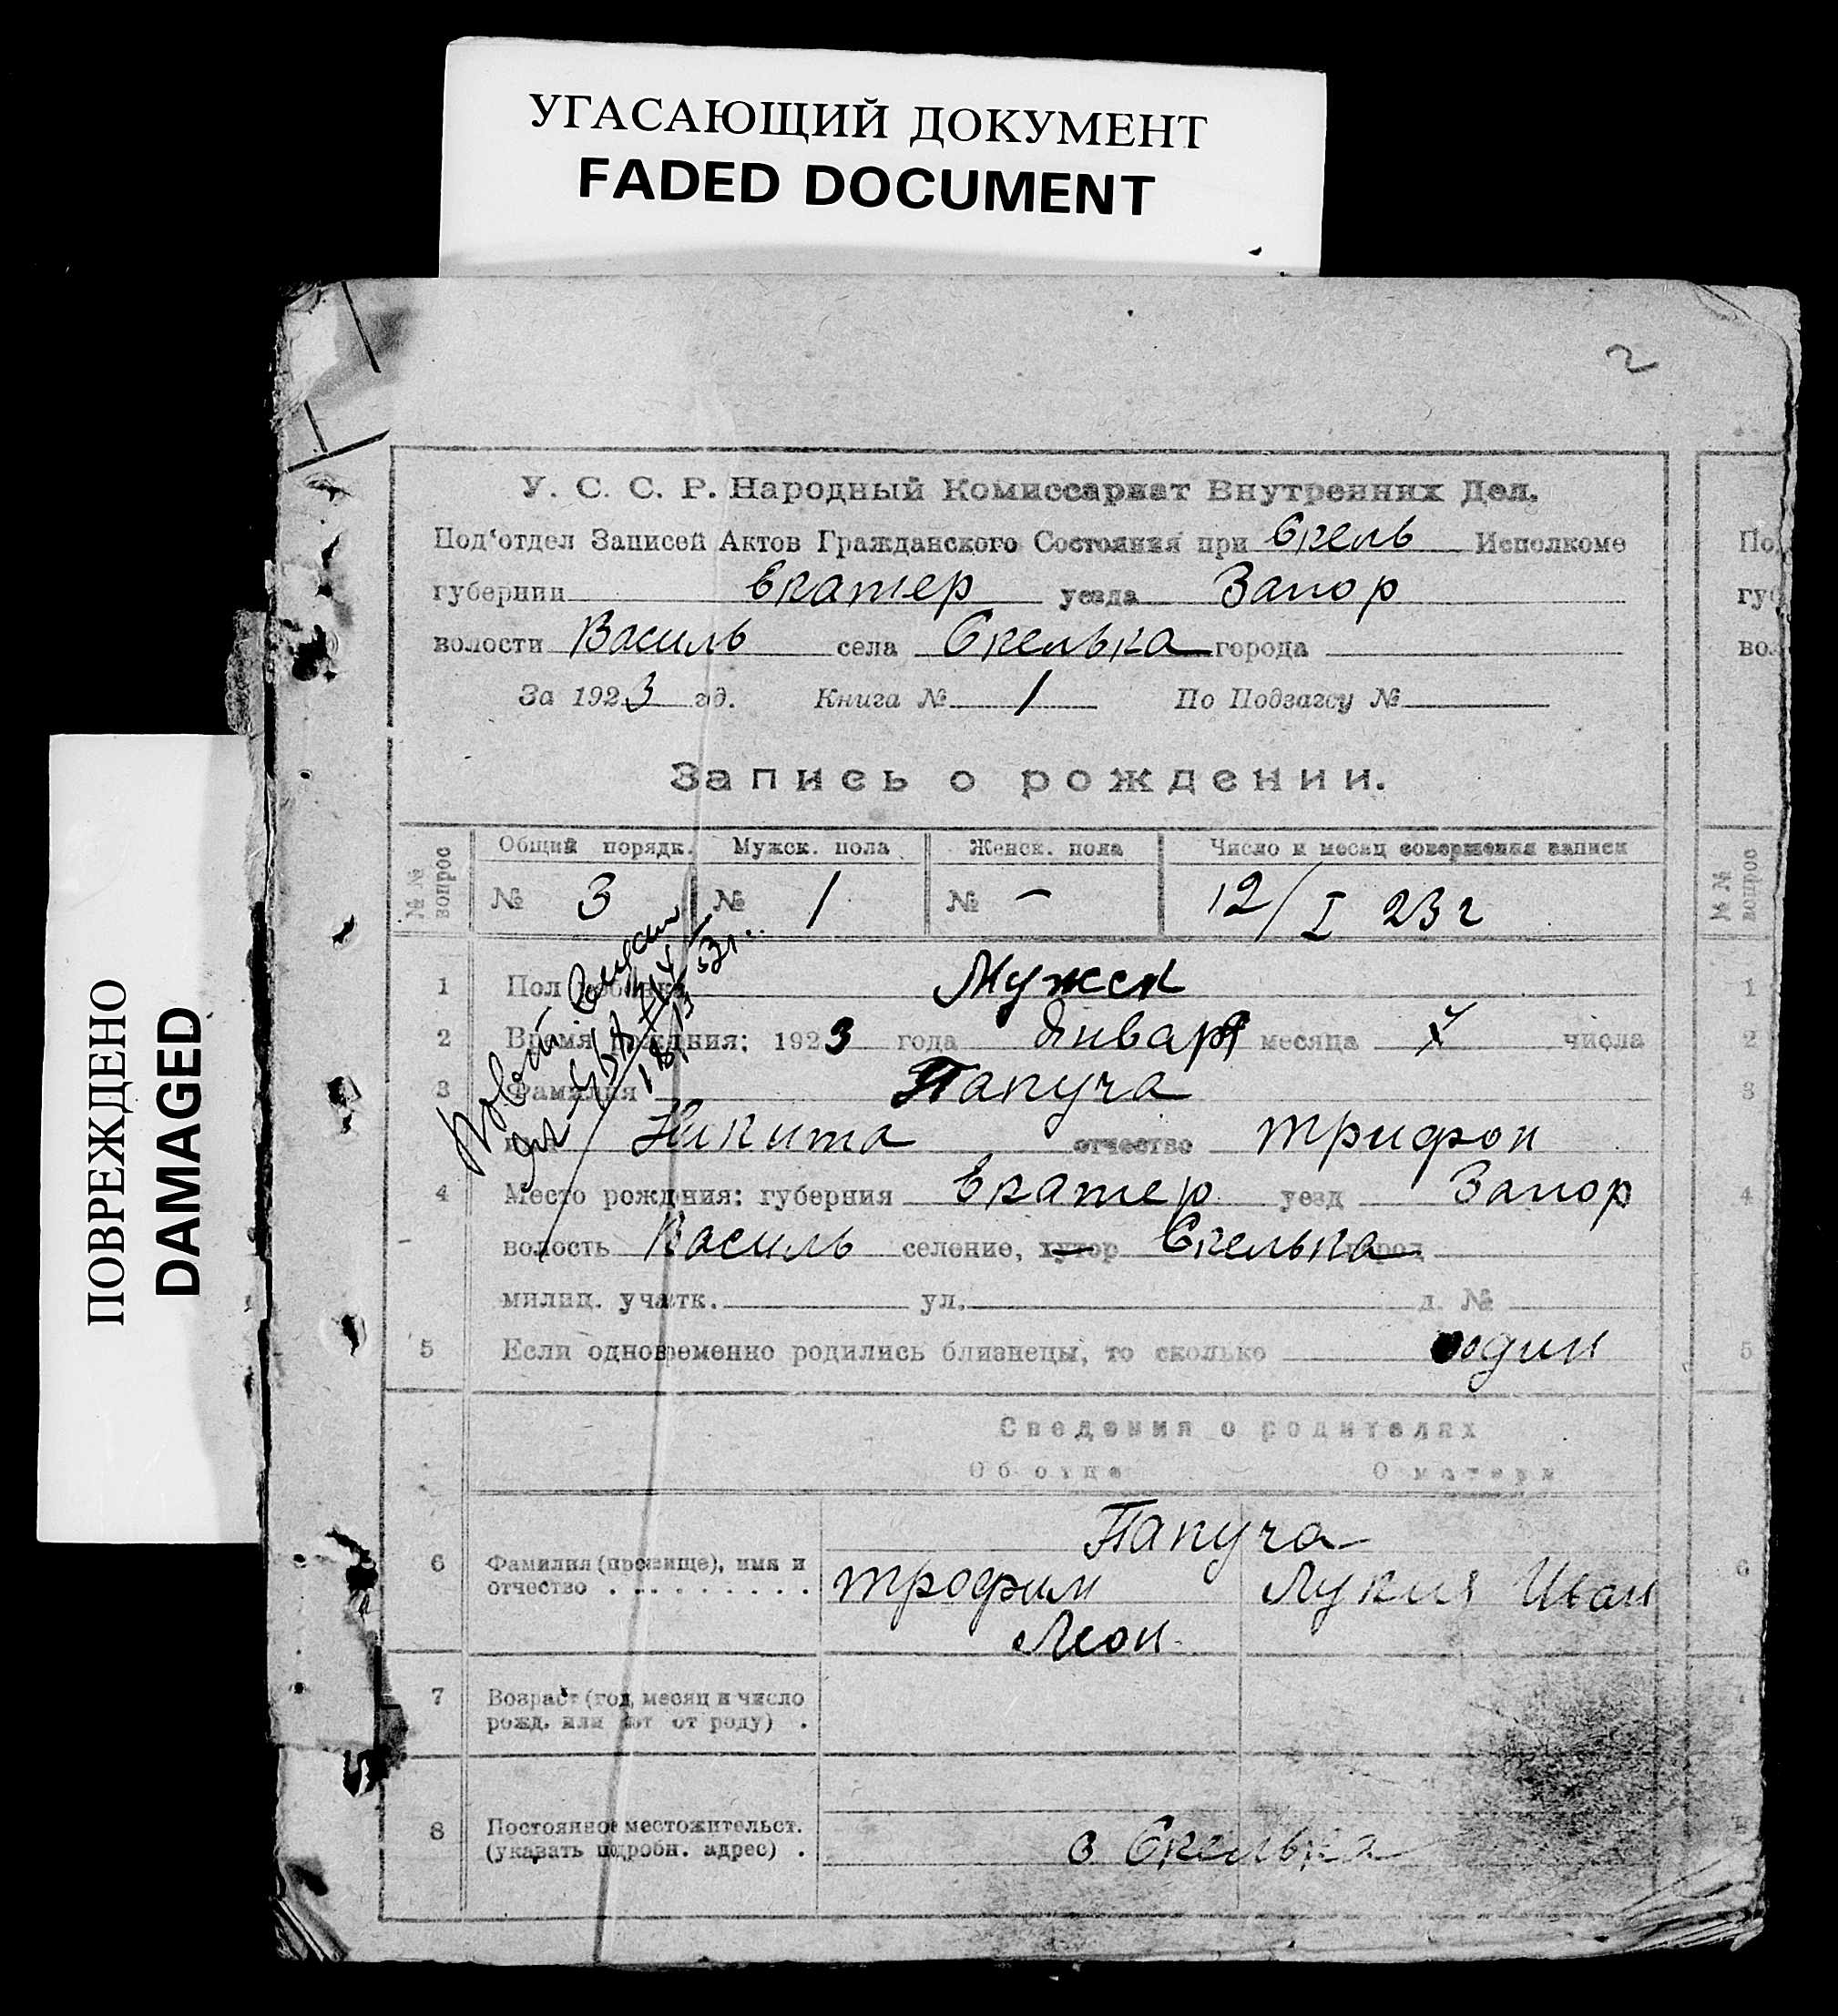 УГАСАЮЩИЙ ДОКУМЕНТ
FADED DOCUMENT
ПОВРЕЖДЕНО
DAMAGED
2
У. С. С. Р. Народный Комиссариат Внутренних Дел.
Под'отдел Записей Актов Гражданского Состояния при Скель Исполкоме
губернии Екатер уезда Запор
волости Василь села Скелька города
За 1923 год. Книга № 1 По Подзагсу №
Запись о рождении.
№ № вопрос Общий порядк. Мужск. пола Женск. пола Число и месяц совершения записи
№ 3 № 1 № — 12/I 23 г
1 Пол ребенка Мужск
2 Время рождения: 1923 года Января месяца числа
3 Фамилия Папуча
имя Никита отчество Трифон
4 Место рождения: губерния Екатер уезд Запор
волость Василь селение, хутор Скелька город
милиц. участк. ул. д. №
5 Если одновременно родились близнецы, то сколько один
Сведения о родителях
Об отце О матери
Папуча
6 Фамилия (прозвище), имя и
отчество . . . . . . . . . Трофим Лукия Иван
Леон.
7 Возраст (год, месяц и число
рожд. или лет от роду) .
8 Постоянное местожительст.
(указать подробн. адрес) . с Скелька
По
губ
вол
№ № вопрос
1
2
3
4
5
6